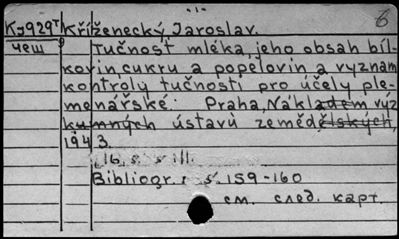 6
Ку929т Kříženecký, Jaroslav.
чеш Tučnost mléka, jeho obsah bíl-
kovin, cukru a popelovin a význam
kontroly tučnosti pro účely ple-
menářské. Praha, Nákladem výz
kumných ústavů zemědělských,
1943.
16. s. s ill.
Bibliogr.: s. 159-160
см. след. карт.